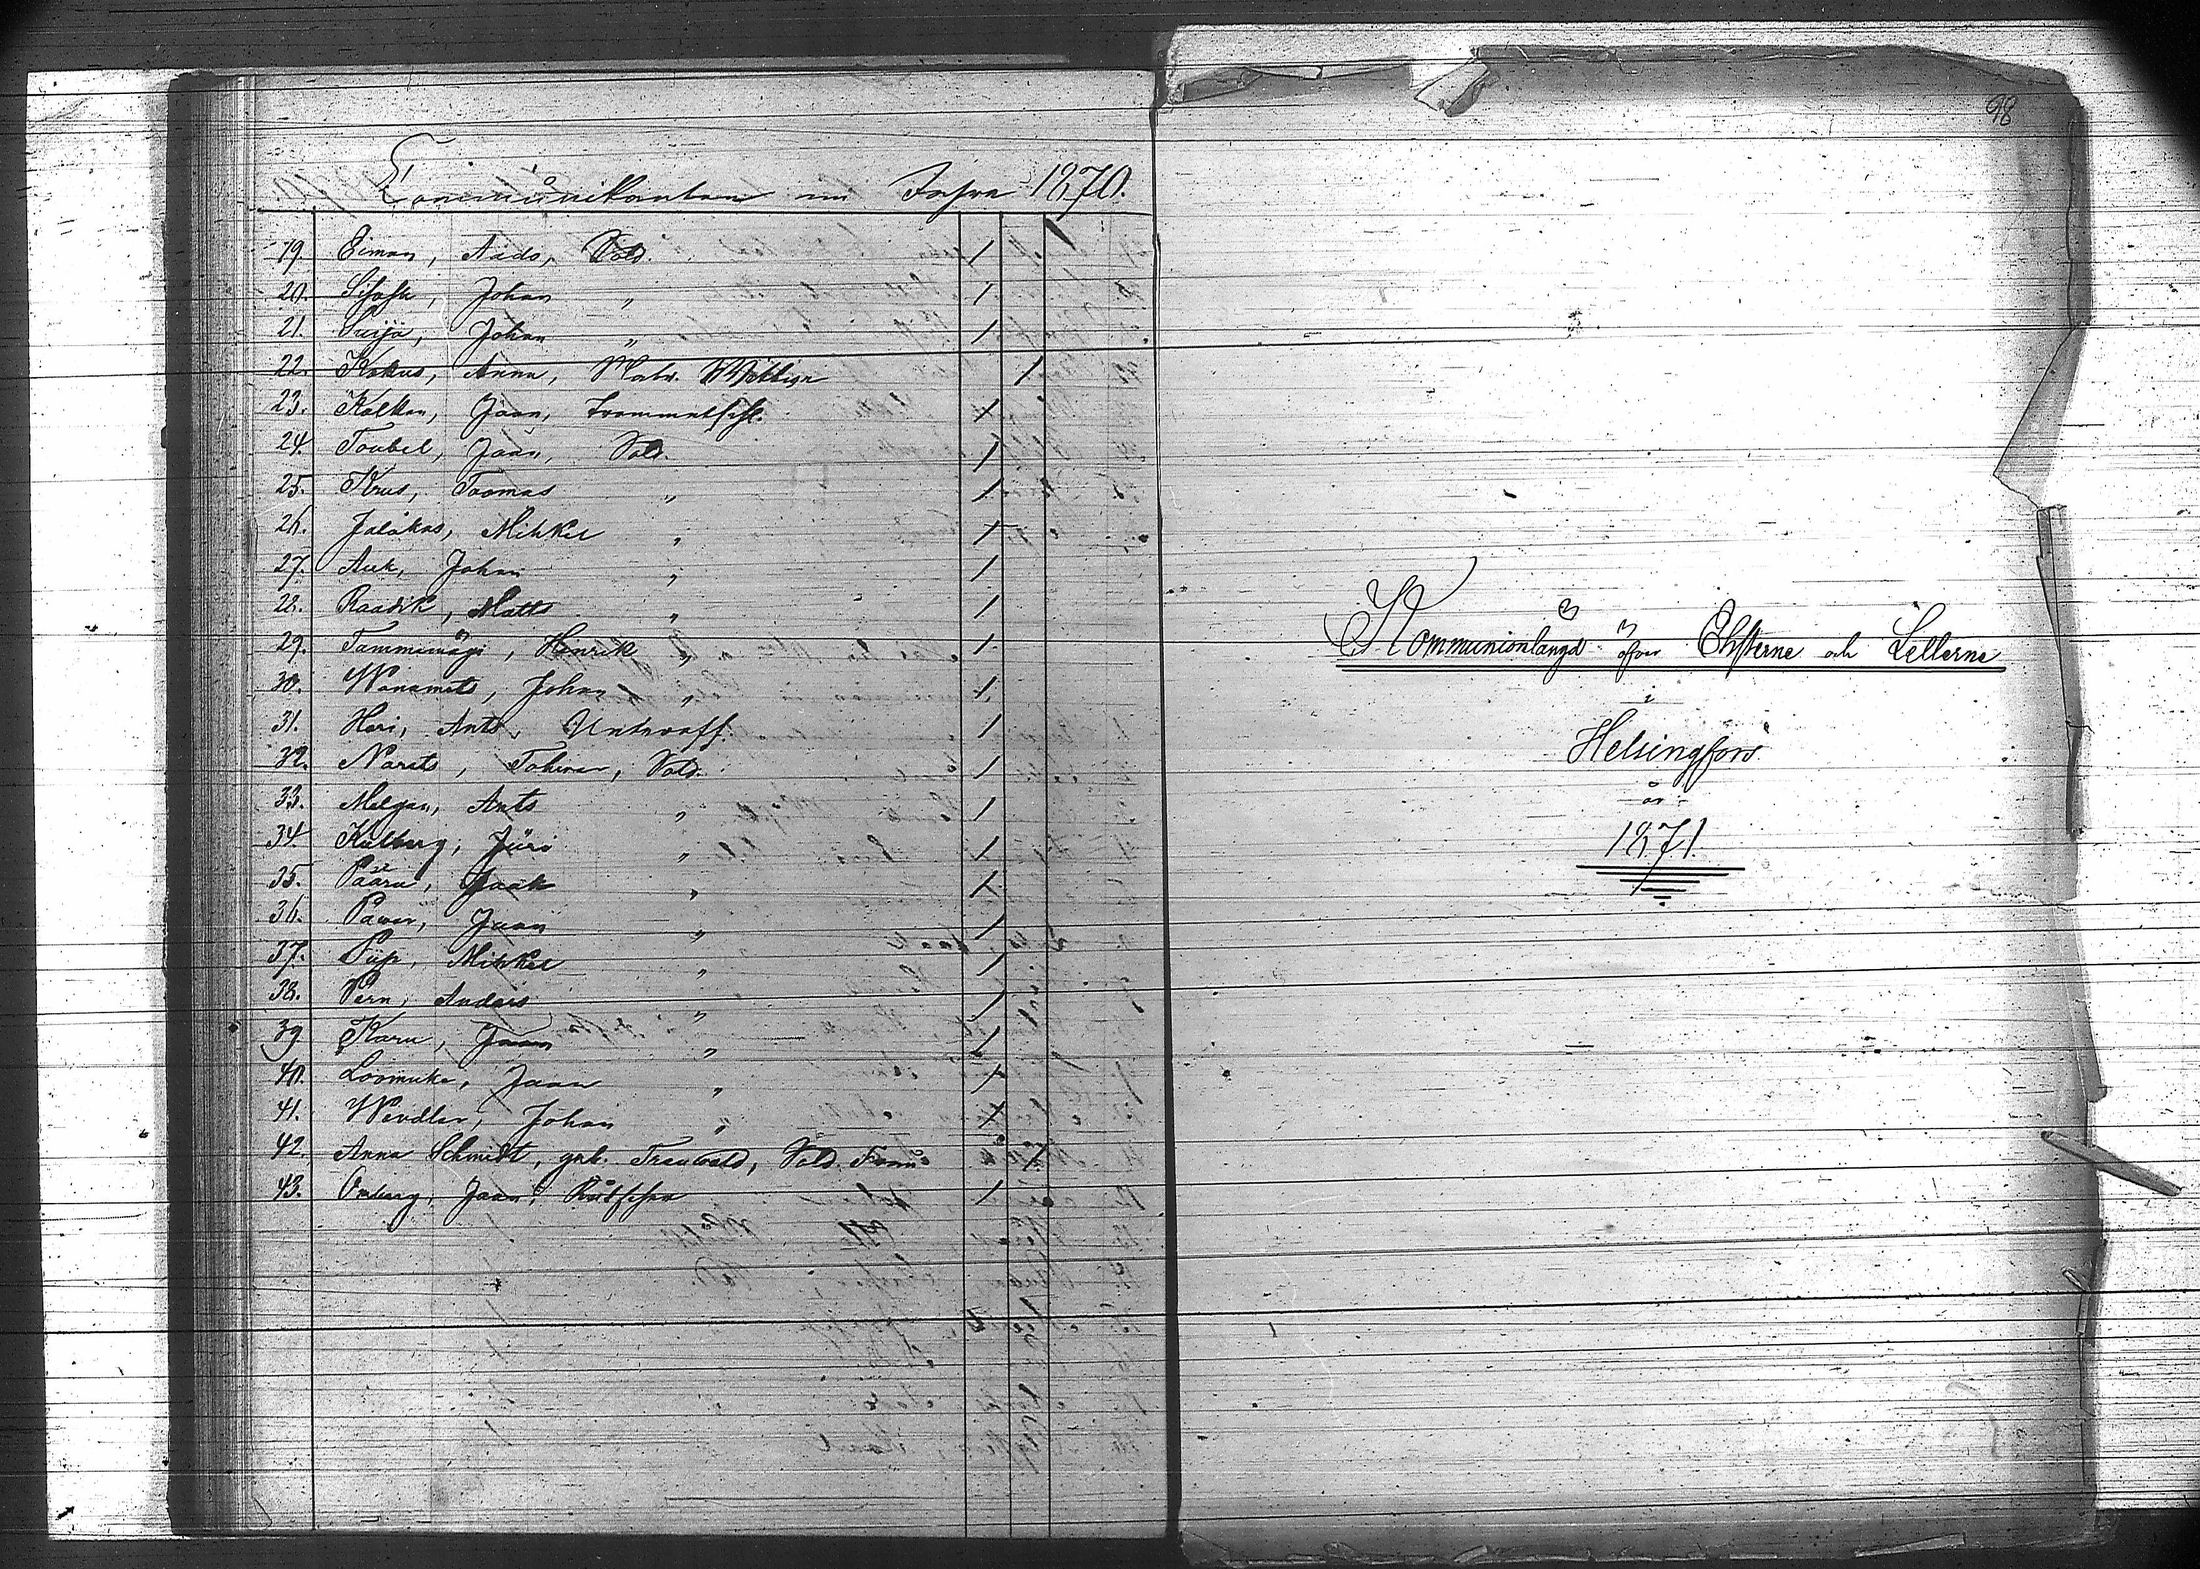 Communikanten im Jahre 1870.
19. Eiman, Aado, Sold. 1
20. Johan " 1
21. Johan " 1
22. Kokus, Anna, Matr. Wittwe 1
23. Kolkan, Jaan, Trommelschl. 1
24. Toubel, Jaan, Sold. 1
25. Krus, Toomas " 1
26. Jalakas, Mihkel " 1
27. Auk, Johan " 1
28. Raadik, Matts " 1
29. Tammemägi, Henrik " 1
30. Wanamats, Johan " 1
31. Hari, Ants, Unteroff. 1
32. Narits, Sold. 1
33. Melgan, Ants " 1
34. Kulberg, Jüri " 1
35. Jaak " 1
36. Pawer, Jaan " 1
37. Püp, Mihkel " 1
38. Pern, Anders " 1
39. Karu, Jaan " 1
40. Loomuka, Jaan " 1
41. Wendler, Johan " 1
42. Anna Schmidt, geb. Trauwald, Sold. Frau 1
43. Omberg, Jaan, 1
98
Kommunionlängd öfver Ehsterne och Letterne
i
Helsingfors
år
1871.